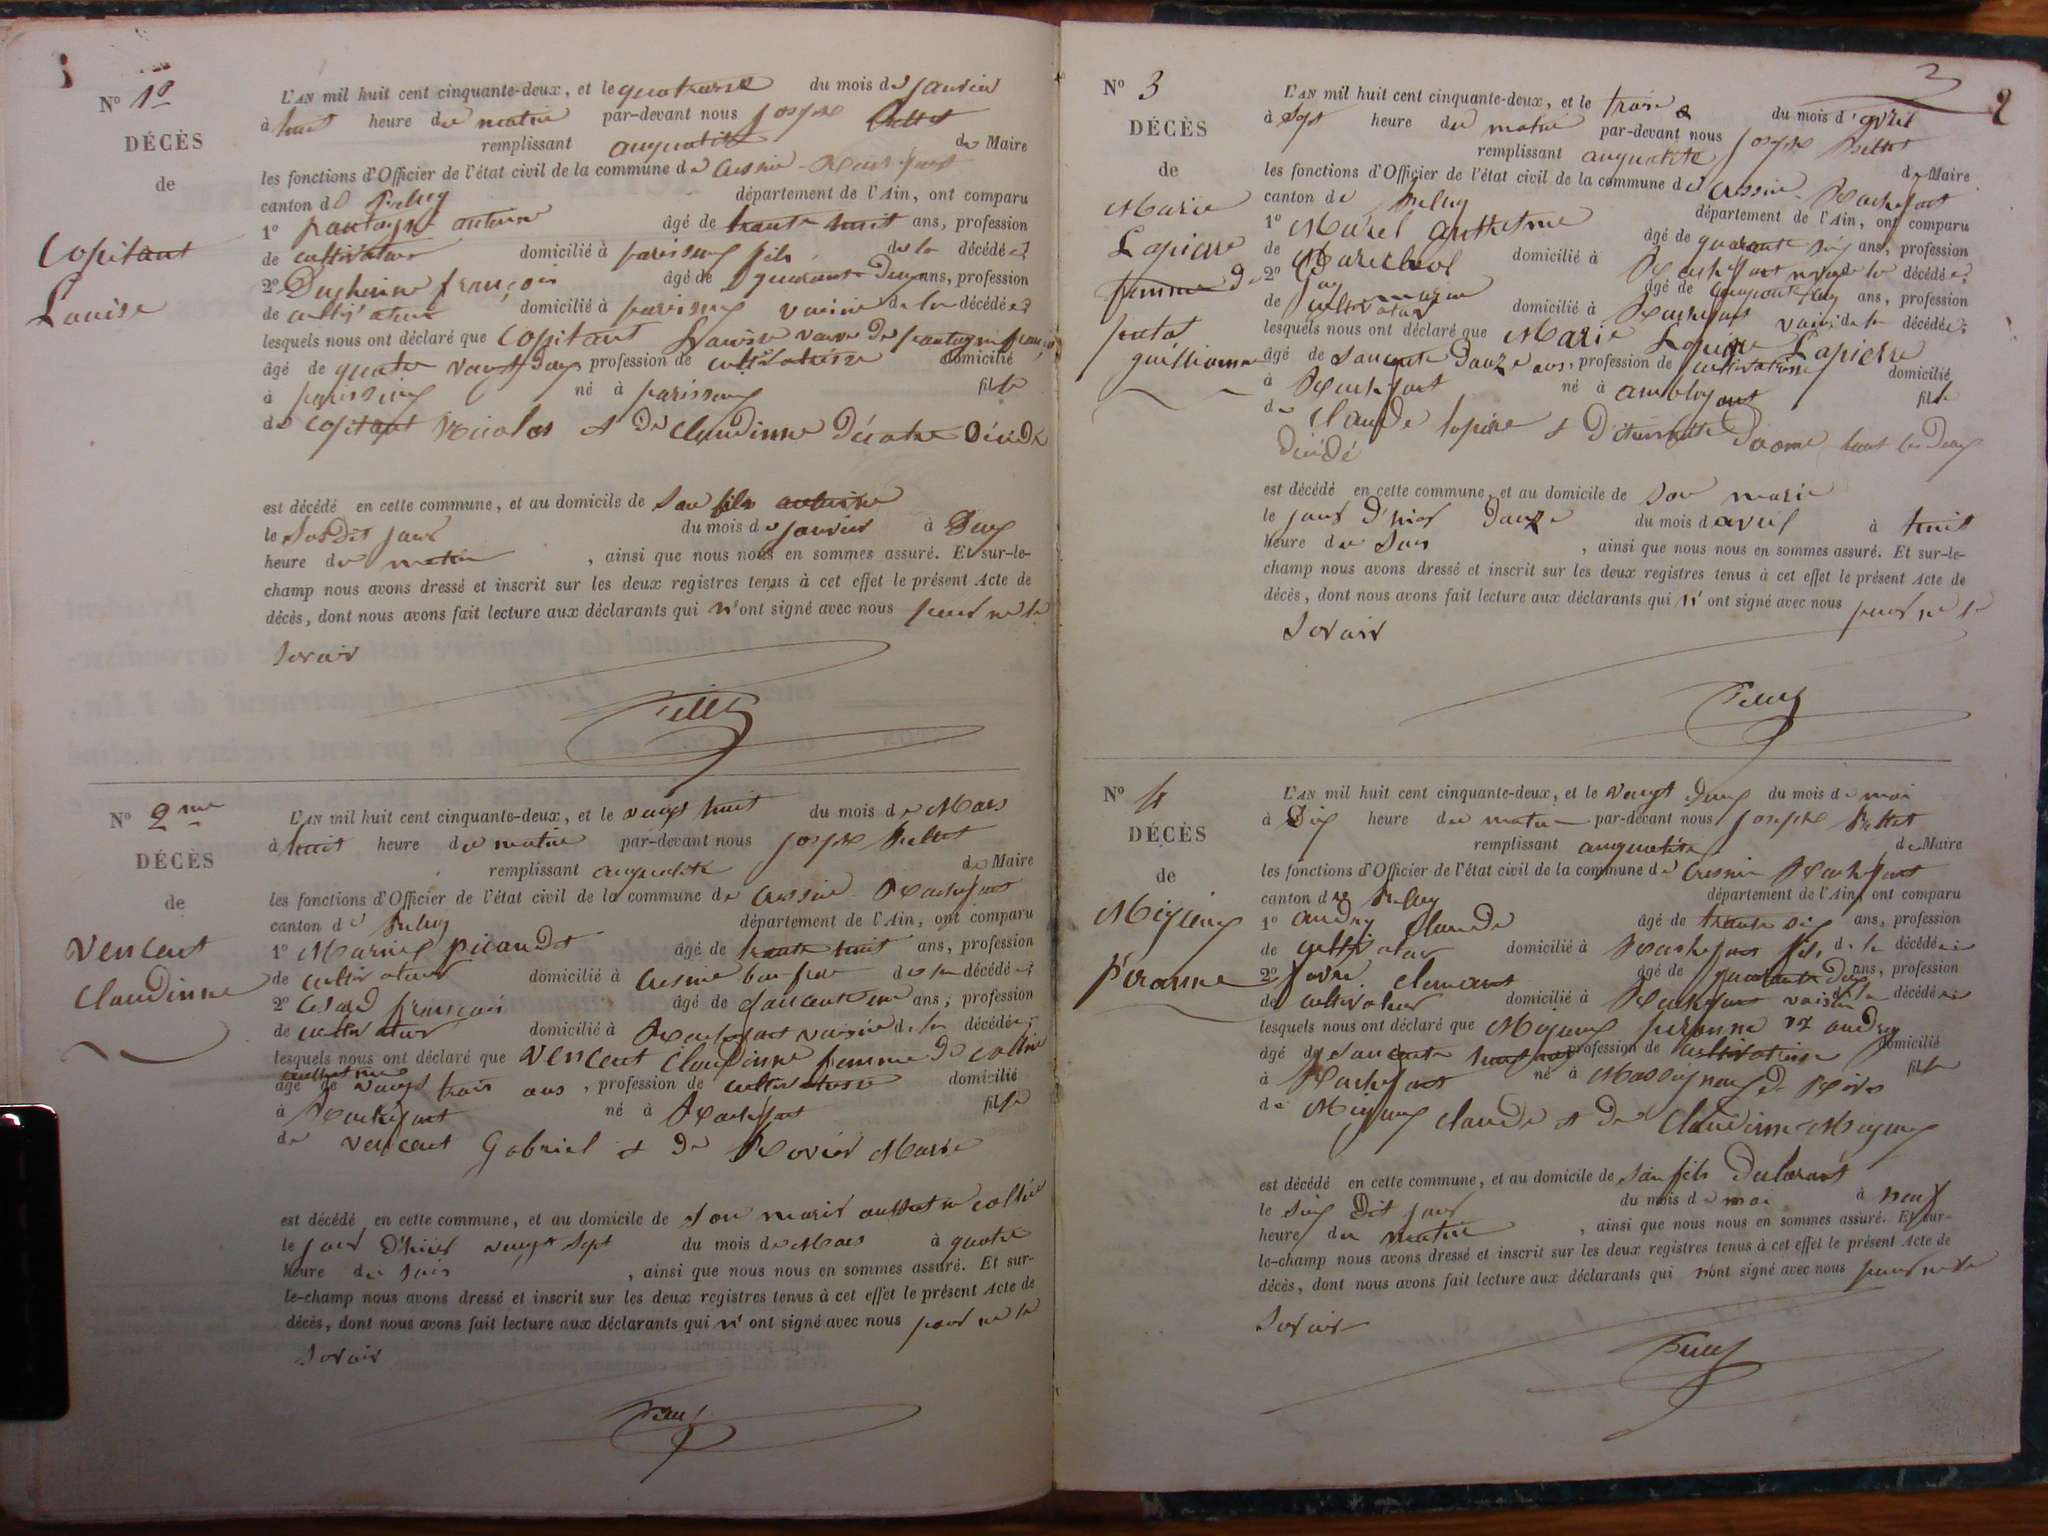 Nº 1º
DÉCÈS
de
Copitant
Louise
L'AN mil huit cent cinquante-deux, et le quatorse du mois de janvier
à huit heure du matin par-devant nous josphe Pettet
remplissant anqualité de Maire
les fonctions d'Officier de l'état civil de la commune de Cressin-Rochefort
canton de Belley département de l'Ain, ont comparu
1º pantagne antoine âgé de trante huit ans, profession
de cultivateur domicilié à parissieu fils de la décédée
2º françois âgé de quarante deux ans, profession
de cultivateur domicilié à parissieu voisin de la décédée
lesquels nous ont déclaré que Copitant Louise veuve de pantagne françois
âgé de quatre vingt deux profession de cultivatrise domicilié
à parissieu né à parissieu fille
de Copitant Nicolas et de Claudinne décédé
est décédé en cette commune, et au domicile de son fils antoine
le susdit jour du mois de janvier à Deux
heure du matin, ainsi que nous nous en sommes assuré. Et sur-le-
champ nous avons dressé et inscrit sur les deux registres tenus à cet effet le présent Acte de
décès, dont nous avons fait lecture aux déclarants qui n'ont signé avec nous pour ne le
savoir
Nº 2me
DÉCÈS
de
Vencent
Claudinne
L'AN mil huit cent cinquante-deux, et le vingt huit du mois de Mars
à huit heure du matin par-devant nous josphe Pettet
remplissant anqualité de Maire
les fonctions d'Officier de l'état civil de la commune de Cressin Rochefort
canton de Belley département de l'Ain, ont comparu
1º âgé de trante huit ans, profession
de cultivateur domicilié à Cresin de la décédée
2º françois âgé de soixante ans, profession
de cultivateur domicilié à Rochefort voisin de la décédée
lesquels nous ont déclaré que Vencent Claudinne femme de Collin
anthelme
âgé de vingt trois ans, profession de cultivatrise domicilié
à Rochefort né à Rochefort fille
de Vencent Gabriel et de Marie
est décédé en cette commune, et au domicile de son marit anthelme Collin
le jour d'hier vingt sept du mois de Mars à quatre
heure du soir, ainsi que nous nous en sommes assuré. Et sur-
le-champ nous avons dressé et inscrit sur les deux registres tenus à cet effet le présent Acte de
décès, dont nous avons fait lecture aux déclarants qui n'ont signé avec nous pour ne le
savoir
2
Nº 3
DÉCÈS
de
Marie
Lapierre
femme de
guilliaume
L'AN mil huit cent cinquante-deux, et le traise du mois d'avril
à sept heure du matin par-devant nous josphe Pettet
remplissant anqualité de Maire
les fonctions d'Officier de l'état civil de la commune de Cressin-Rochefort
canton de Belley département de l'Ain, ont comparu
1º Morel anthelme âgé de quarante ans, profession
de Marechal domicilié à Rochefort de la décédée
2º âgé de ans, profession
de cultivateur domicilié à Rochefort voisin de la décédée
lesquels nous ont déclaré que Marie Lapierre
âgé de soixante Douze ans, profession de cultivatrise domicilié
à Rochefort né à fille
de Claude lapierre et tous les deux
décédé
est décédé en cette commune, et au domicile de son marie
le jour d'hier Douze du mois d avril à huit
heure du soir, ainsi que nous nous en sommes assuré. Et sur-le-
champ nous avons dressé et inscrit sur les deux registres tenus à cet effet le présent Acte de
décès, dont nous avons fait lecture aux déclarants qui n'ont signé avec nous pour ne le
savoir
Nº 4
DÉCÈS
de
Migieux
péronne
L'AN mil huit cent cinquante-deux, et le vingt Deux du mois de mai
à Dix heure du matin par-devant nous josphe Pettet
remplissant anqualité de Maire
les fonctions d'Officier de l'état civil de la commune de Cressin Rochefort
canton de Belley département de l'Ain, ont comparu
1º andry Claude âgé de trante six ans, profession
de cultivateur domicilié à Rochefort fils de la décédée
2º âgé de quarante Deux ans, profession
de cultivateur domicilié à Rochefort voisin de la décédée
lesquels nous ont déclaré que Migieux péronne andry
âgé de soixante huit ans profession de cultivatrise domicilié
à Rochefort né à Massignieux de Rives fille
de Migieux Claude et de Claudinne Migieux
est décédé en cette commune, et au domicile de son fils Declarant
le sus Dit jour du mois de mai à neuf
heure du matin, ainsi que nous nous en sommes assuré. Et sur-
le-champ nous avons dressé et inscrit sur les deux registres tenus à cet effet le présent Acte de
décès, dont nous avons fait lecture aux déclarants qui n'ont signé avec nous pour ne le
savoir